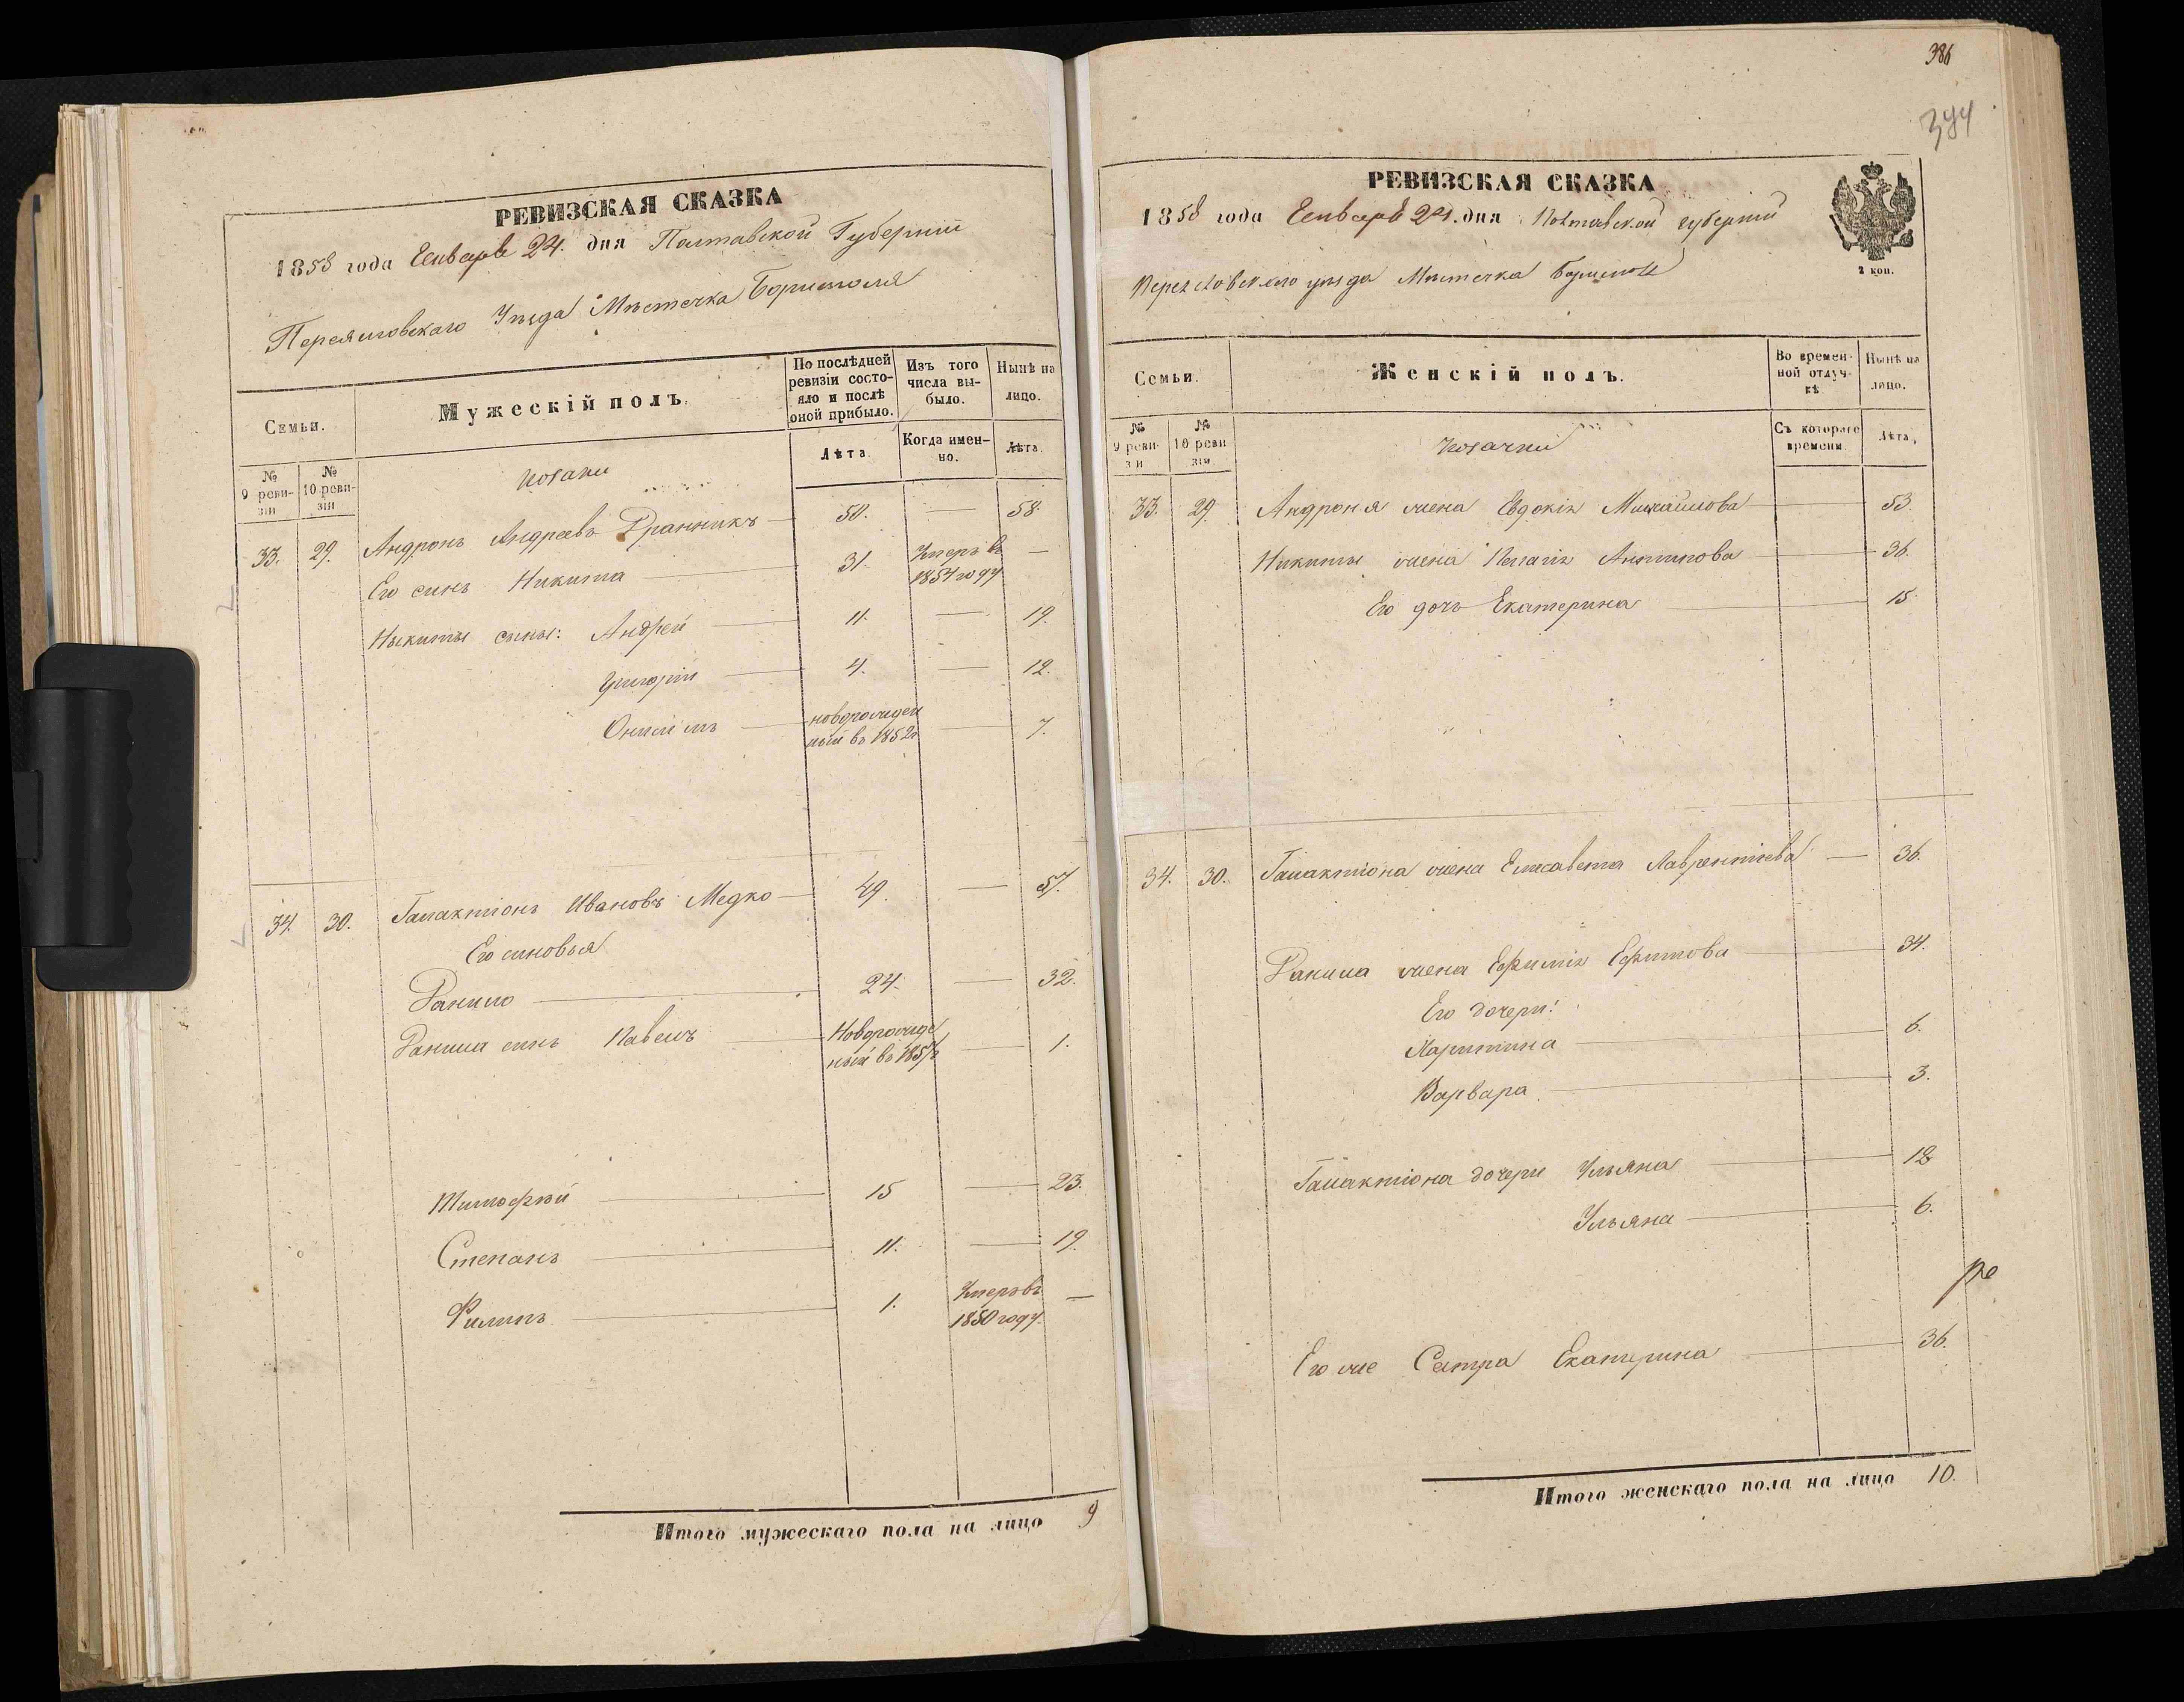 РЕВИЗСКАЯ СКАЗКА
1858 года Генваря 24. дня Полтавской Губерніи
Переяславскаго Уезда Мѣстечка Борисполя
Семьи.
Мужескій полъ.
По послѣдней ревизіи состояло и послѣ оной прибыло.
Изъ того числа выбыло.
Нынѣ на лицо.
№ 9 ревизіи
№ 10 ревизіи
Козаки
Лѣта.
Когда именно.
Лѣта.
33. 29. Андронъ Андреевъ Дранникъ — 50. — 58.
Его синъ Никита — 31. Умеръ въ 1854 году —
Никиты сыны: Андрей — 11. — 19.
Григорій — 4. — 12.
Онисимъ — новорожден ный въ 1852 — 7.
34. 30. Галактіонъ Ивановъ Медко — 49. — 57.
Его синовья
Данило — 24. — 32.
Данила синъ Павелъ — Новорожде ный въ 1857 — 1.
Тимофѣй — 15 — 23.
Степанъ — 11. — 19.
Филипъ — 1. Умеръ въ 1850 году. —
Итого мужескаго пола на лицо 9
386
394
РЕВИЗСКАЯ СКАЗКА
1858 года Генваря 24. дня Полтавской губерніи
Переяславскаго уезда Мѣстечка Борисполя
2 коп.
Семьи.
Женскій полъ.
Во временной отлучкѣ
Нынѣ на лицо.
№ 9 ревизіи
№ 10 ревизіи
Козачки
Съ котораго времени.
Лѣта.
33. 29. Андрона жена Евдокія Михайлова — 53.
Никиты жена Пелагія Антипова — 36.
Его дочь Екатерина — 15.
34. 30. Галактіона жена Елисавета Лаврентіева — 36.
Данила жена Ефимія Ефимова — 34.
Его дочери:
Харитина — 6.
Варвара — 3.
Галактіона дочери Ульяна — 12
Ульяна — 6.
Его же Сестра Екатерина — 36.
Итого женскаго пола на лицо 10.